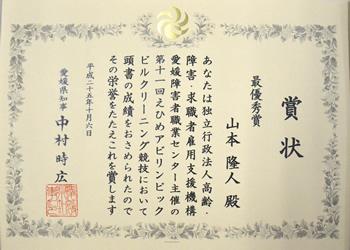 賞状
最優秀賞
山本 隆人 殿
あなたは独立行政法人高齢・
障害・求職者雇用支援機構
愛媛障害者職業センター主催の
第十一回えひめアビリンピック
ビルクリーニング競技において
頭書の成績をおさめられたので
その栄誉をたたえこれを賞します
平成二十五年十月六日
愛媛県知事 中村 時広